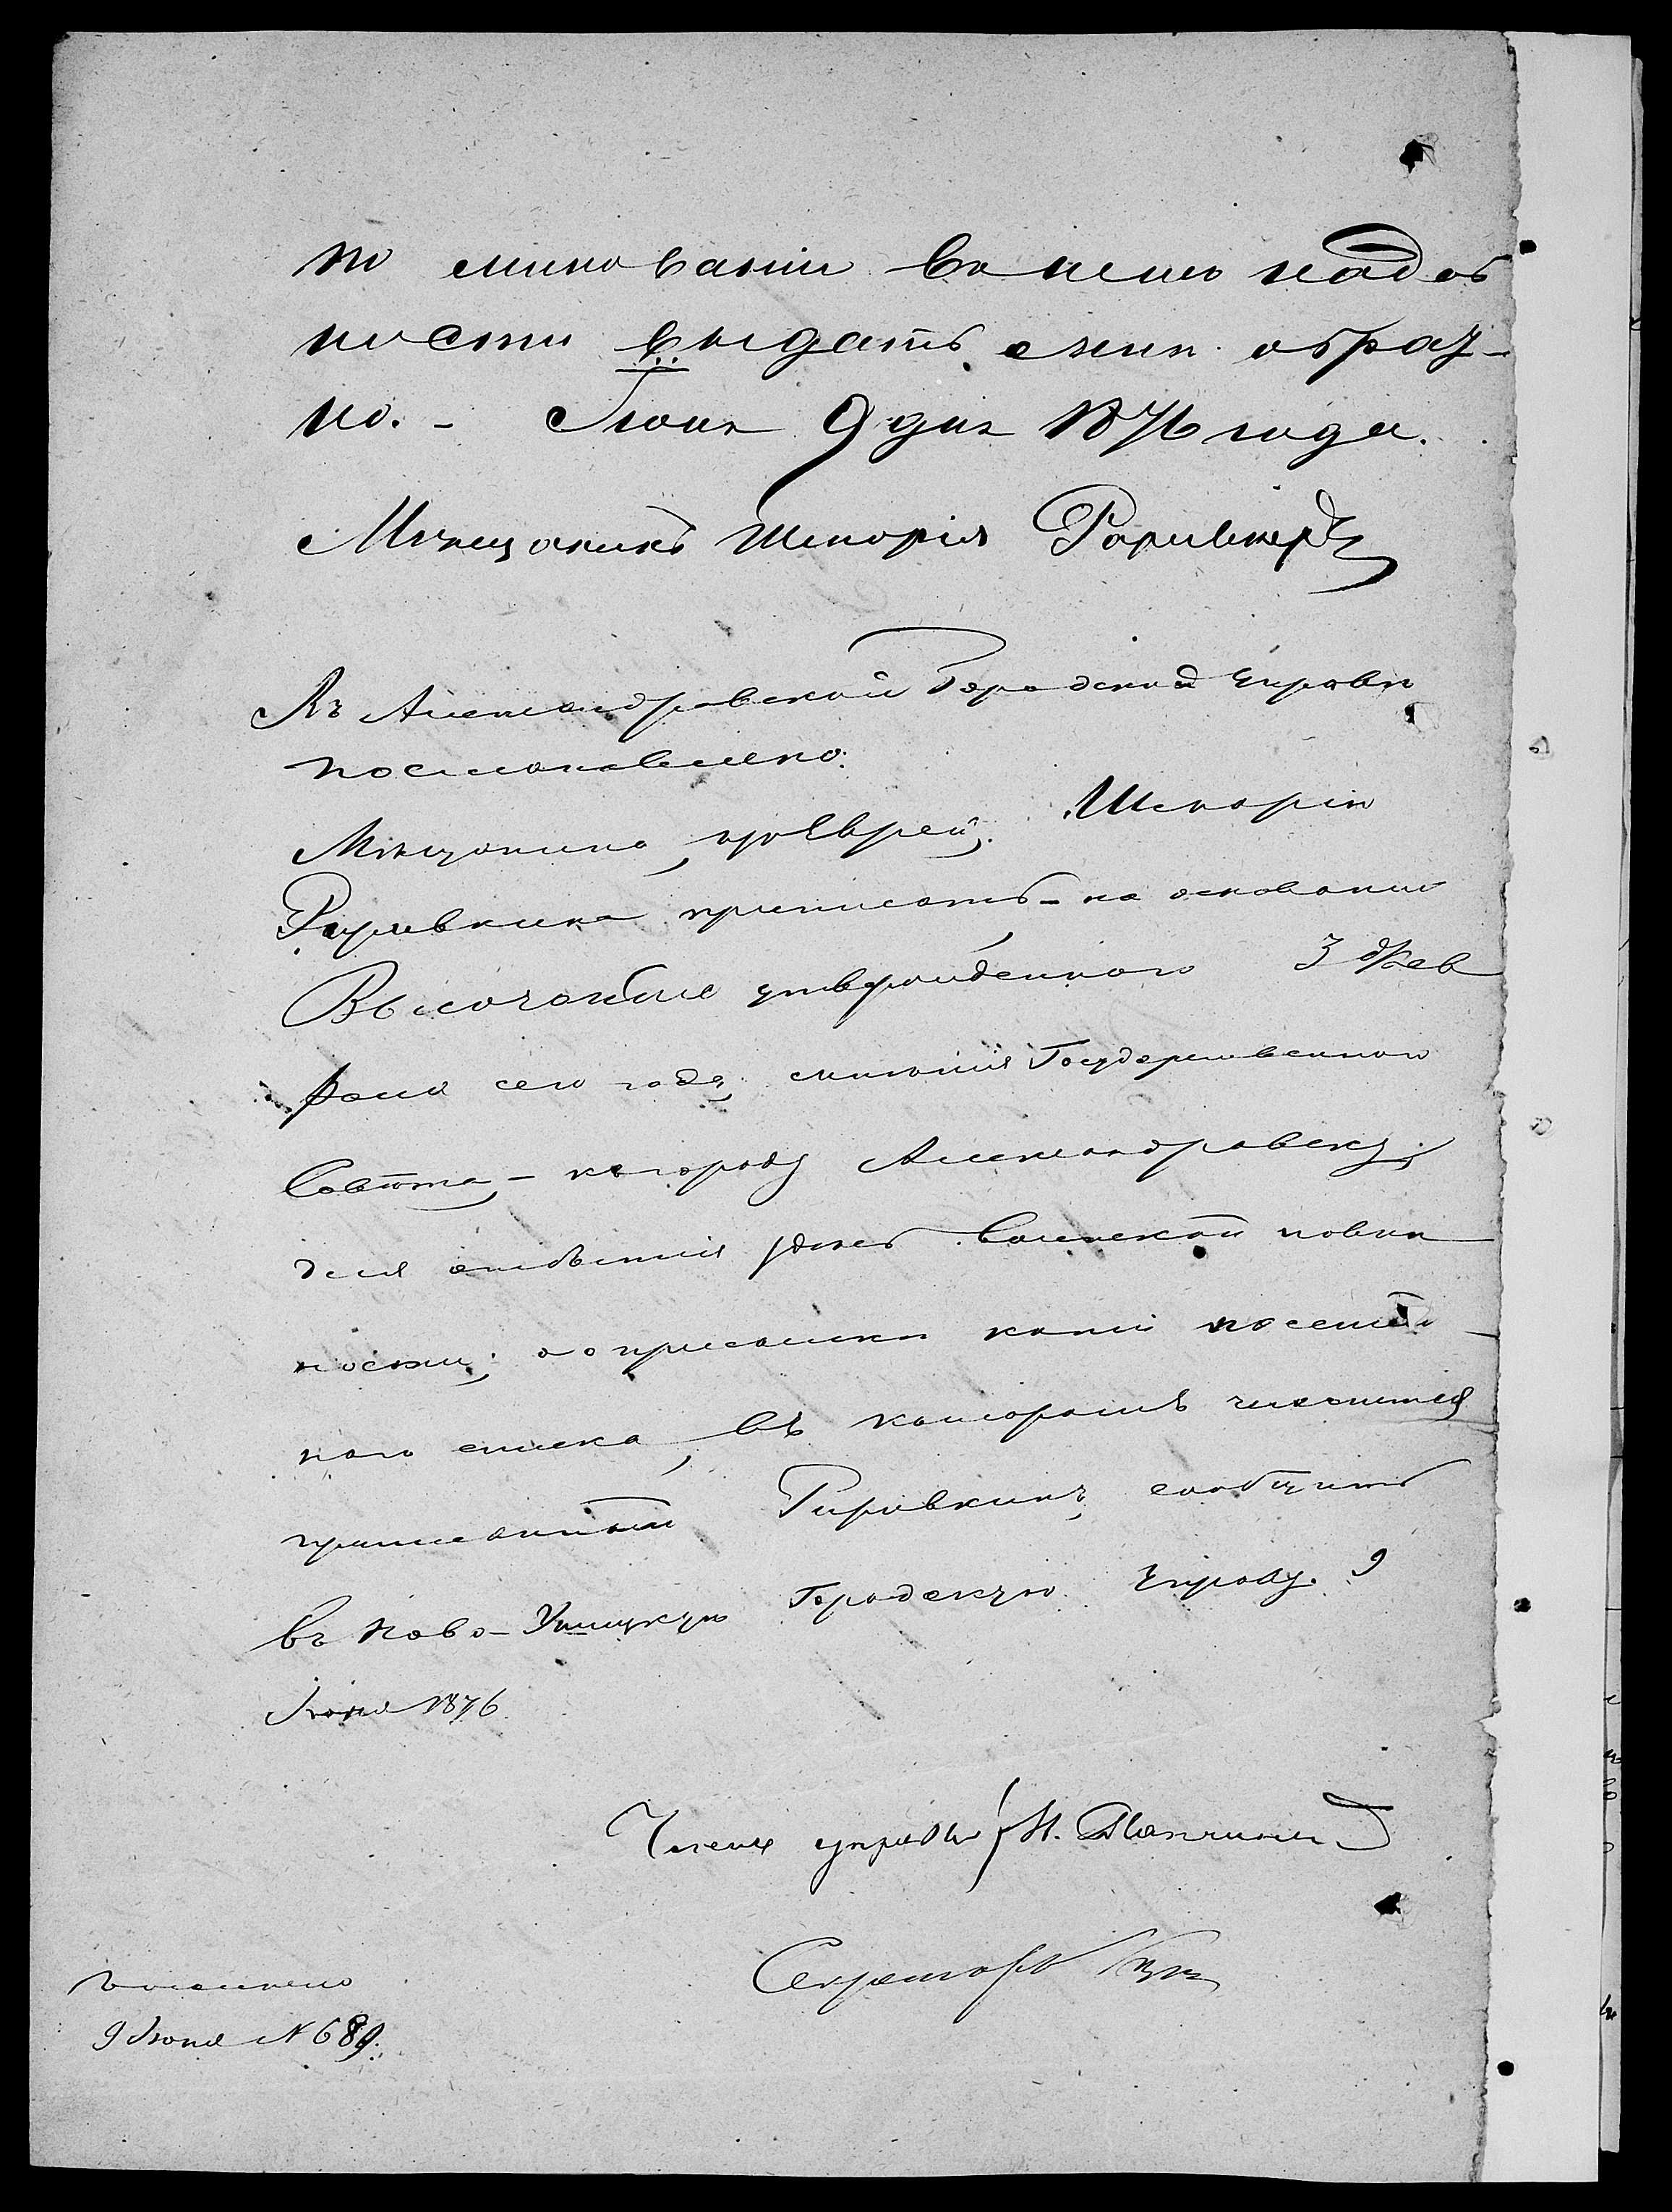 по миновании въ немъ надоб
ности выдать мнѣ обрат-
но. - Іюня 9 дня 1876 года.
Мѣщанинъ Шепорiя
Въ Александровской Городской Управѣ
постановлено:
Мѣщанина, изъ Евреевъ,
приписать на основаніи
Высочайше утвержденнаго 3 Фев
раля сего года, мнѣнія Государственнаго
Совѣта, - къ городу Александровску,
для отбытія здѣсь воинской повин
ности; а о присылкѣ копіи посемей-
наго списка, въ которомъ числится
приписанный Рировкинъ, сообщить
въ Ново-Ушицкую Городскую Управу. 9
Іюня 1876
Членъ управы
Секретарь
Исполнено
9 Іюня № 689.